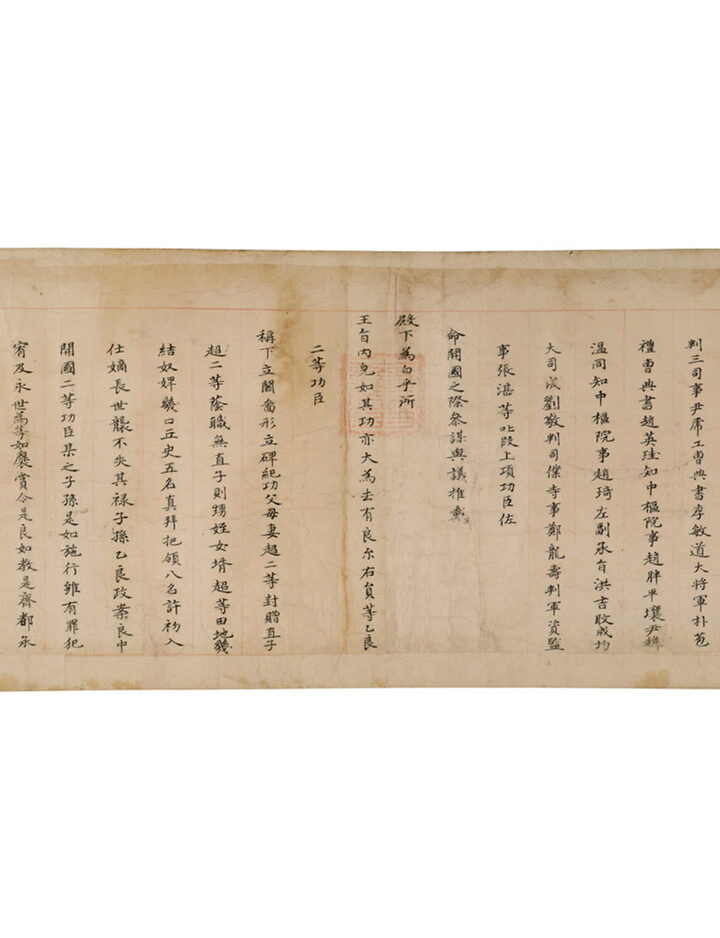 判三司事尹虎工曹典書李敏道大將軍朴苞
禮曹典書趙英珪知中樞院事趙胖平壤尹趙
溫同知中樞院事趙琦左副承旨洪吉旼成均
大司成劉敬判司僕寺事鄭龍壽判軍資監
事張湛等叱段上項功臣佐
命開國之際參謀與議推戴
殿下為白乎所
王旨內皃如其功亦大為去有良尔右員等乙良
二等功臣
稱下立閣啚形立碑紀功父母妻超二等封贈直子
超二等蔭職無直子則甥姪女壻超等田地幾
結奴婢幾口丘史五名真拜把領八名許初入
仕嫡長世襲不失其祿子孫乙良政案良中
開國二等功臣某之子孫是如施行雖有罪犯
宥及永世為等如褒賞令是良如教是齊都承